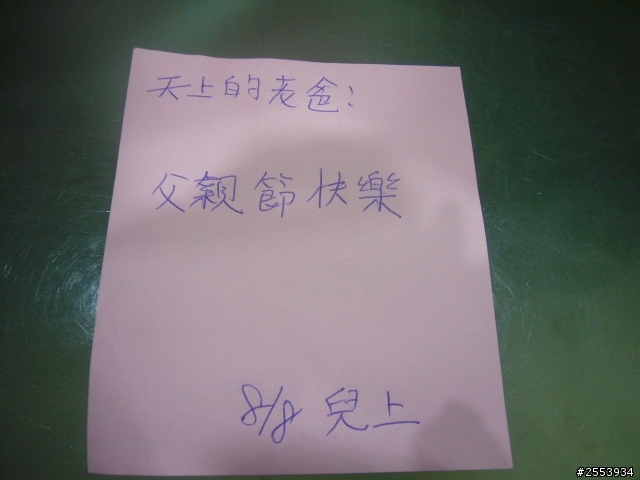 天上的老爸:
父親節快樂
8/8 兒上
#2553934